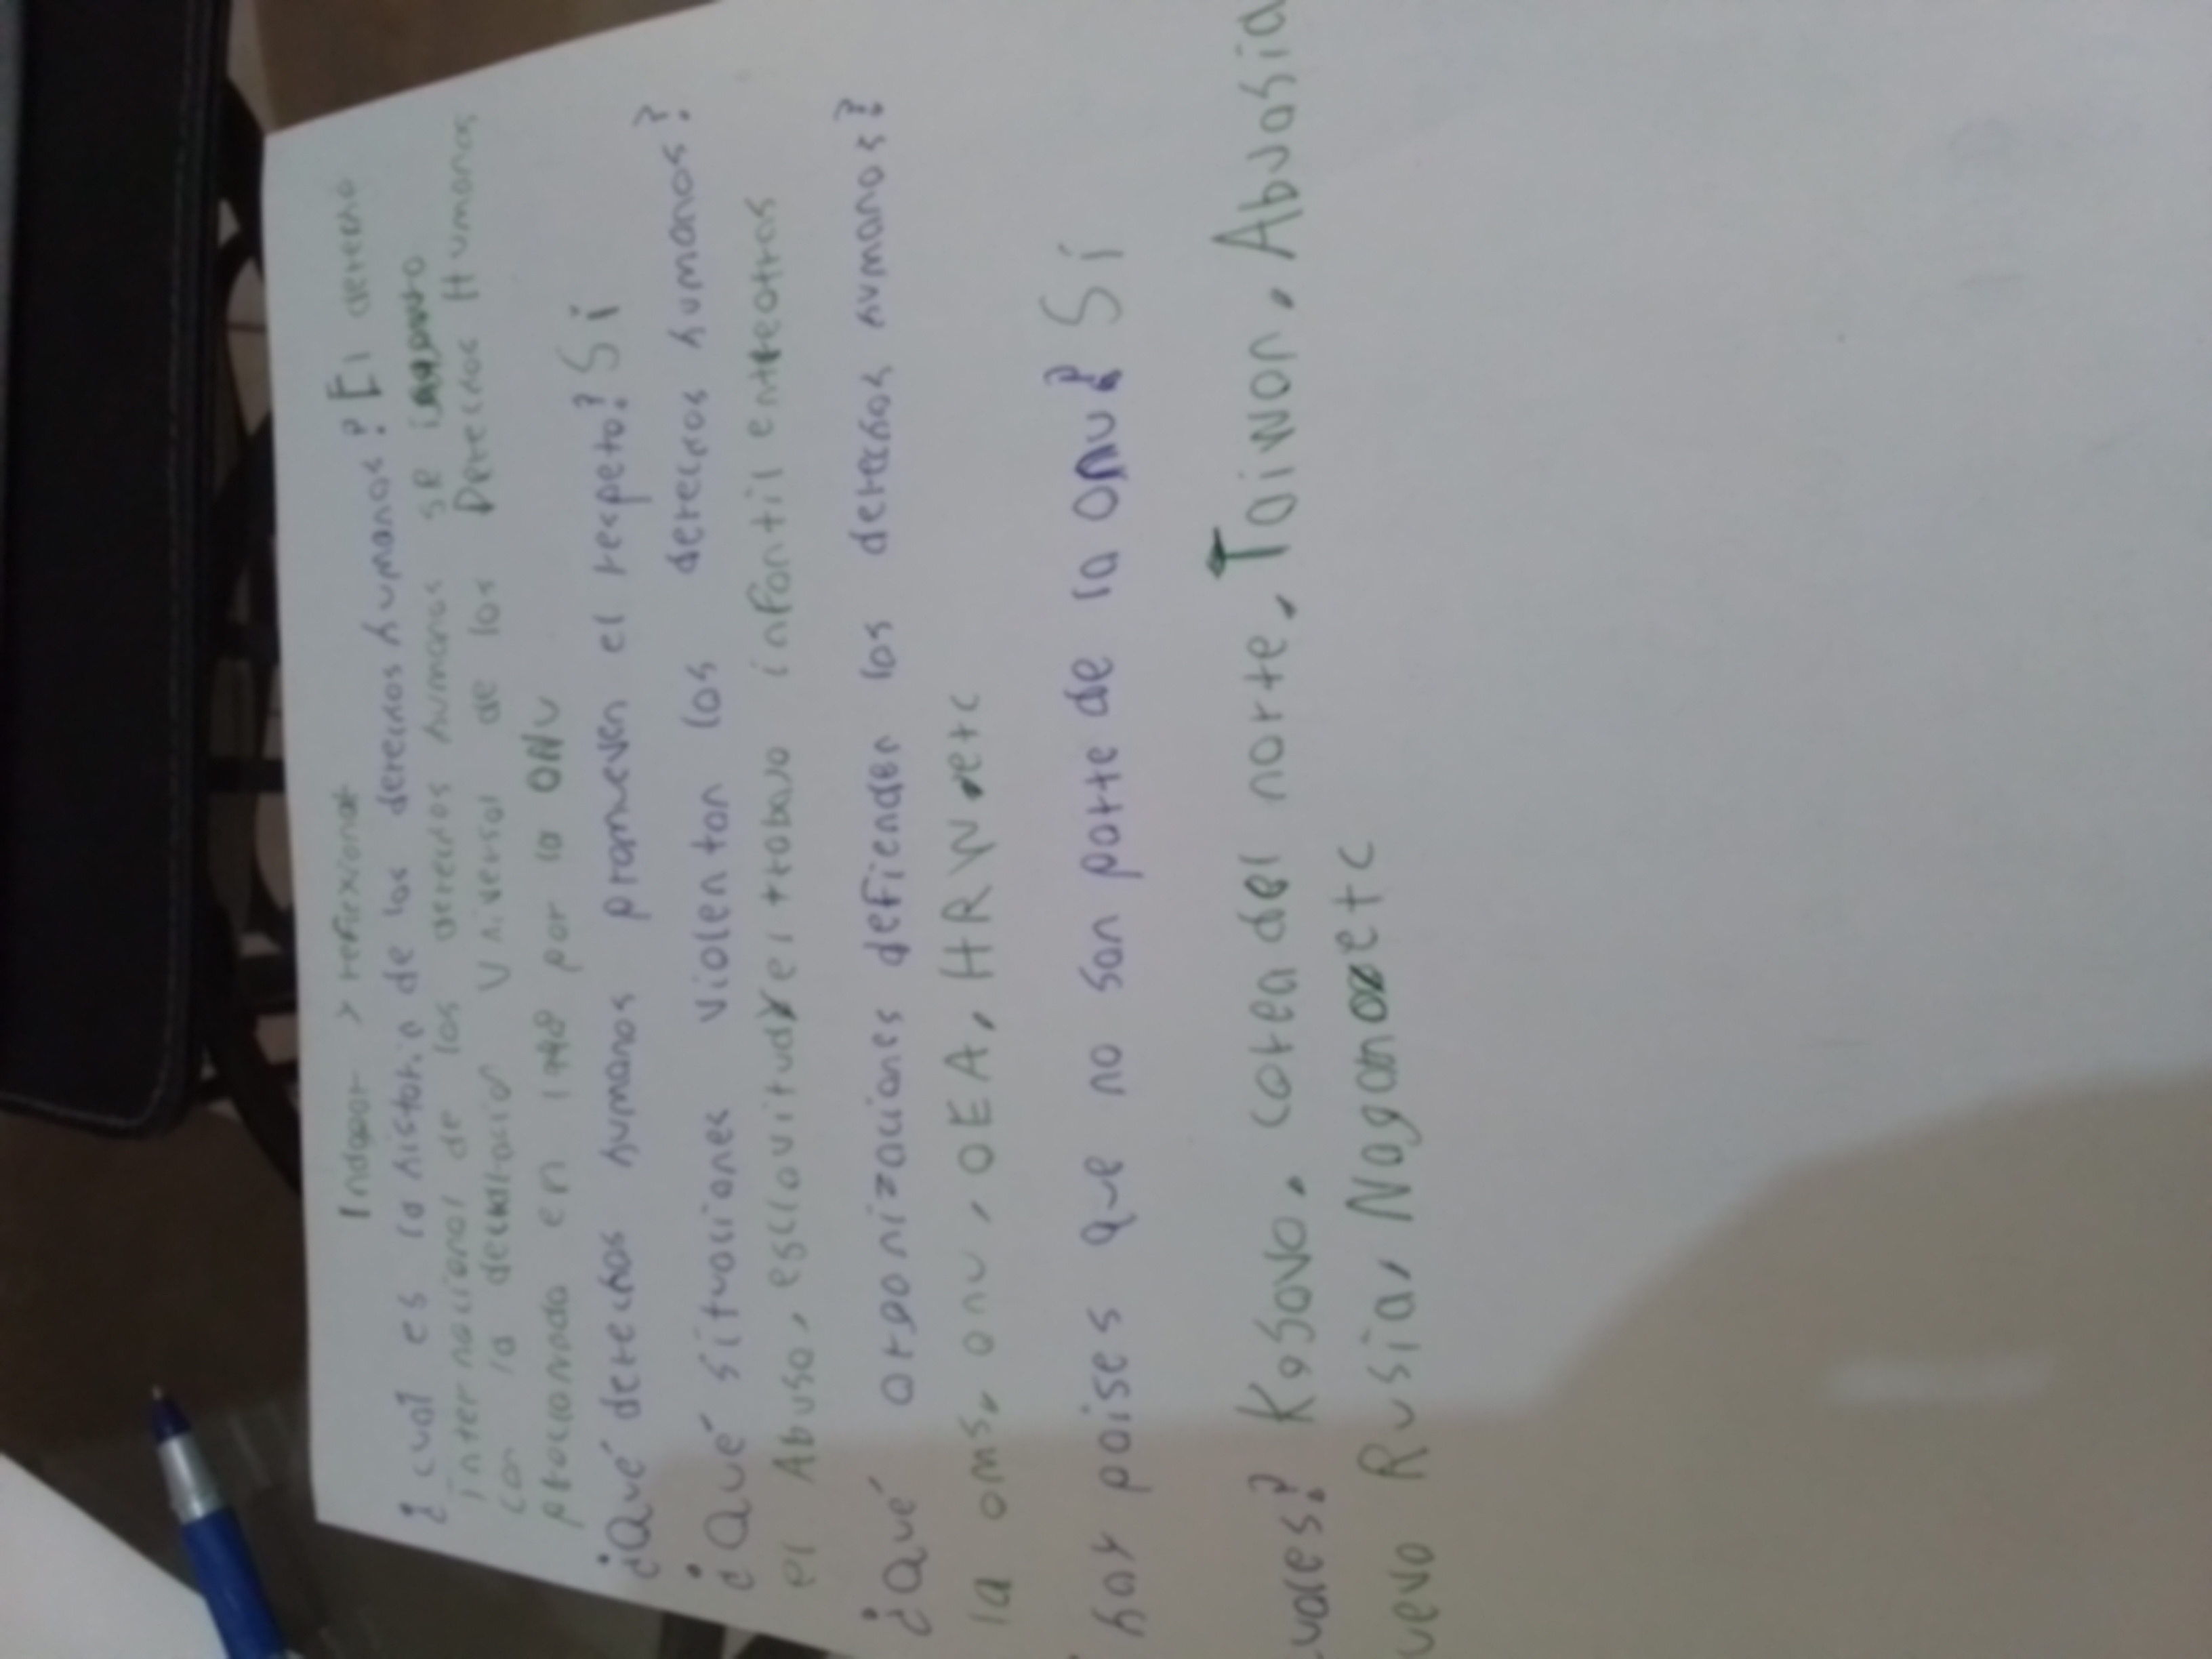 Indagar > reflexionar
¿cual es la historia de los derechos humanos? El derecho
internacional de los derechos humanos se
con la declaració Universal de los Derechos Humanos
proclamada en 1948 por la ONU
¿Qué derechos humanos promueven el respeto? Sí
¿Qué situaciones violentan los derechos humanos?
el Abuso, esclavitud y el trabajo infantil entre otras
¿Qué organizaciones defienden los derechos humanos?
la oms, onu, OEA, HRW, etc
hay paises que no son parte de la onu? Sí
uales? Kosovo, corea del norte, Taiwan, Abuasia
ueva Rusia, Nagorno etc